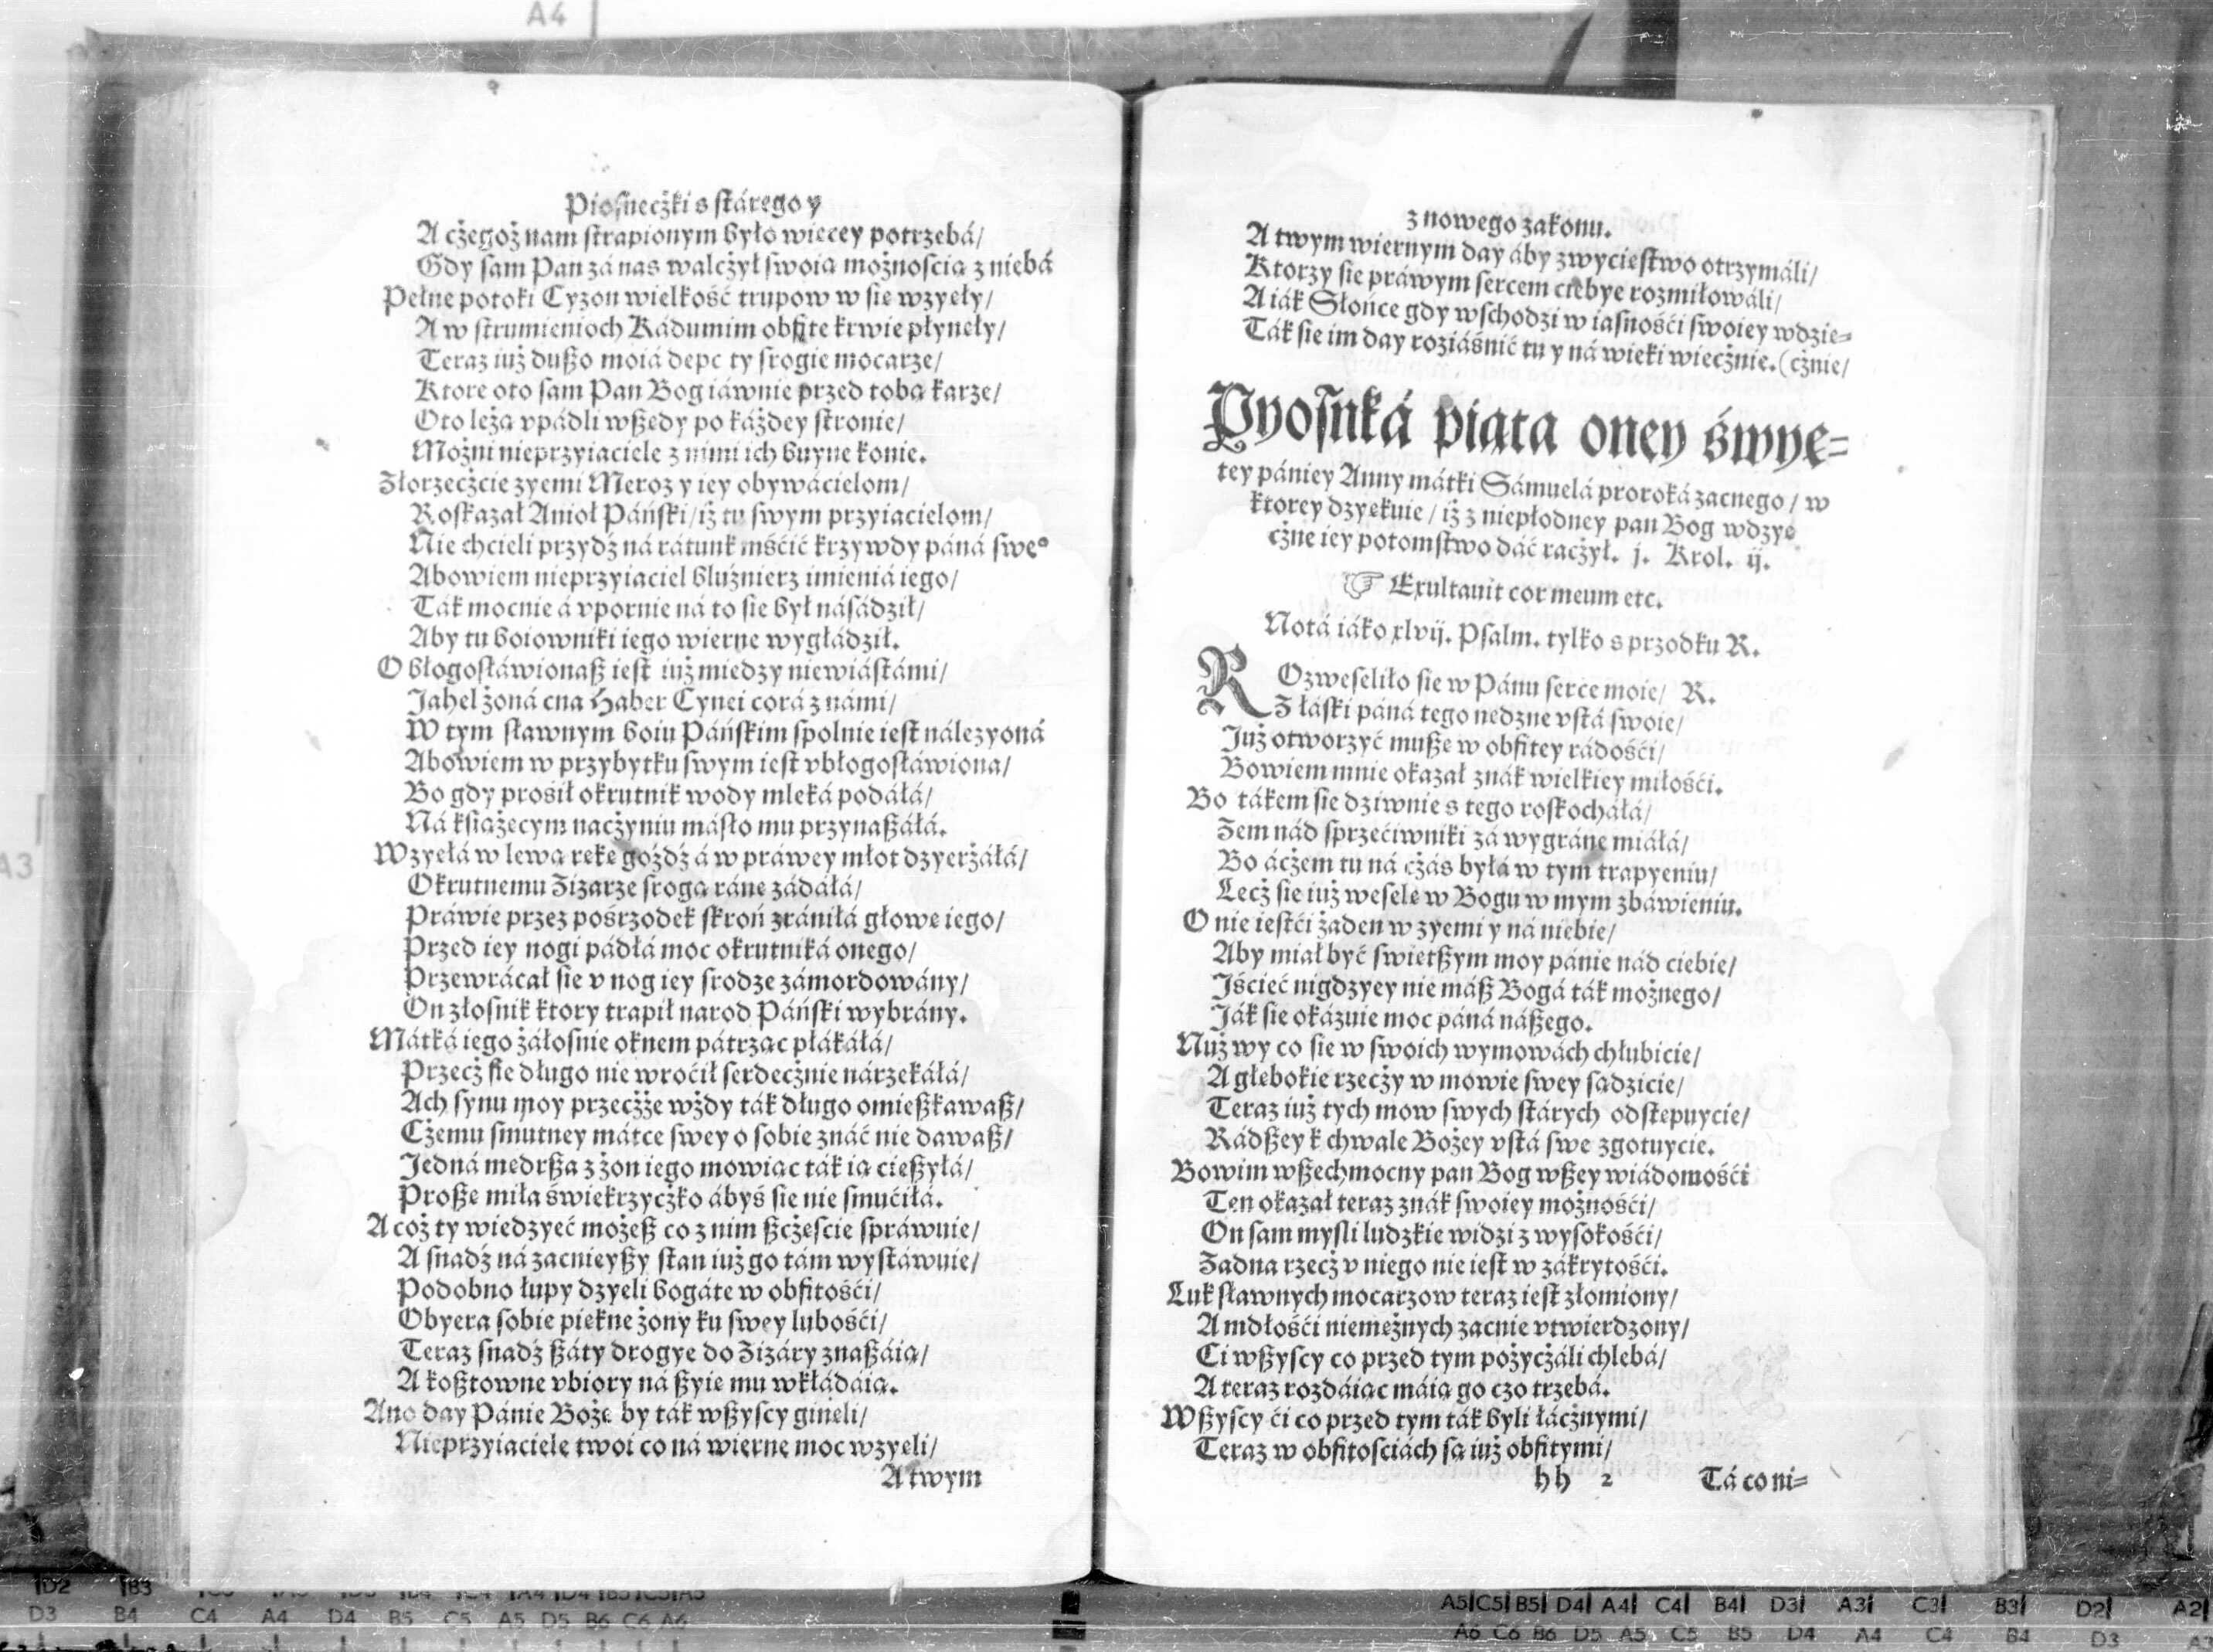 Piosneczki s stárego y
A czegoż nam strapionym było wiecey potrzebá/
Gdy sam Pan zá nas walczył swoią możnoscią z niebá
Pełne potoki Cyzon wielkość trupow w sie wzyeły/
A w strumienioch Kádumim obfite krwie płyneły/
Teraz iuż dußo moiá depc ty srogie mocarze/
Ktore oto sam Pan Bog iáwnie przed tobą karze/
Oto leżą vpádli wßedy po káżdey stronie/
Możni nieprzyiaciele z nimi ich buyne konie.
Złorzeczcie zyemi Meroz y iey obywácielom/
Roskazał Anioł Páński/ iż tu swym przyiacielom/
Nie chcieli przydź ná rátunk mśćić krzywdy páná sweº
Abowiem nieprzyiaciel bluźnierz imieniá iego/
Ták mocnie á vpornie ná to sie był násádził/
Aby tu boiowniki iego wierne wygłádził.
O błogosłáwionaß iest iuż miedzy niewiástámi/
Jahel żoná cna Haber Cynei corá z námi/
W tym sławnym boiu Páńskim spolnie iest nálezyoná
Abowiem w przybytku swym iest vbłogosłáwiona/
Bo gdy prosił okrutnik wody mleká podáłá/
Ná książecym naczyniu másło mu przynaßáłá.
Wzyełá w lewą reke goźdź á w práwey młot dzyerżáłá/
Okrutnemu Zizarze srogą ráne zádáłá/
Práwie przez pośrzodek skroń zrániłá głowe iego/
Przed iey nogi pádłá moc okrutniká onego/
Przewrácał sie v nog iey srodze zámordowány/
On złosnik ktory trapił narod Páński wybrány.
Mátká iego żáłosnie oknem pátrząc płákáłá/
Przecż sie długo nie wroćił serdecznie nárzekáłá/
Ach synu moy przeczże wżdy ták długo omießkawaß/
Cżemu smutney mátce swey o sobie znáć nie dawaß/
Jedná medrßa z żon iego mowiąc ták ią cießyłá/
Proße miła świekrzyczko ábyś sie nie smućiłá.
A coż ty wiedzyeć możeß co z nim ßczescie spráwuie/
A snadź ná zacnieyßy stan iuż go tám wystáwuie/
Podobno łupy dzyeli bogáte w obfitośći/
Obyera sobie piekne żony ku swey lubośći/
Teraz snadź ßáty drogye do Zizáry znaßáią/
A koßtowne vbiory ná ßyie mu wkłádáią.
Ano day Pánie Boże by ták wßyscy gineli/
Nieprzyiaciele twoi co ná wierne moc wzyeli/
A twym
z nowego zakonu.
A twym wiernym day áby zwyciestwo otrzymáli/
Ktorzy sie práwym sercem ciebye rozmiłowáli/
A iák Słońce gdy wschodzi w iasnośći swoiey wdzie-
Ták sie im day roziáśnić tu y ná wieki wiecznie. (cznie/
Pyosnká piąta oney świę-
tey pániey Anny mátki Sámuelá proroká zacnego/ w
ktorey dzyekuie/ iż z niepłodney pan Bog wdzye
czne iey potomstwo dáć raczył. j. Krol. ij.
☞ Exultauit cor meum etc.
Notá iáko xlvij. Psalm. tylko s przodku R.
ROzweseliło sie w Pánu serce moie/ R.
Z łáski páná tego nedzne vstá swoie/
Już otworzyć muße w obfitey rádośći/
Bowiem mnie okazał znák wielkiey miłośći.
Bo tákem sie dziwnie s tego roskocháłá/
Zem nád sprzećiwniki zá wygráne miáłá/
Bo áczem tu ná czás byłá w tym trapyeniu/
Lecż sie iuż wesele w Bogu w mym zbáwieniu.
O nie iestći żaden w zyemi y ná niebie/
Aby miał być swietßym moy pánie nád ciebie/
Jśćieć nigdzyey nie máß Bogá ták możnego/
Ják sie okázuie moc páná náßego.
Nuż wy co sie w swoich wymowách chłubicie/
A głebokie rzeczy w mowie swey sadzicie/
Teraz iuż tych mow swych stárych odstepuycie/
Rádßey k chwale Bożey vstá swe zgotuycie.
Bowim wßechmocny pan Bog wßey wiádomośći
Ten okazał teraz znák swoiey możnośći/
On sam mysli ludzkie widzi z wysokośći/
Zadna rzecż v niego nie iest w zákrytośći.
Luk sławnych mocarzow teraz iest złomiony/
A mdłośći niemeżnych zacnie vtwierdzony/
Ci wßyscy co przed tym pożyczáli chlebá/
A teraz rozdáiąc máią go czo trzebá.
Wßyscy ći co przed tym ták byli łácznymi/
Teraz w obfitosciách są iuż obfitymi/
hh 2
Tá co ni-